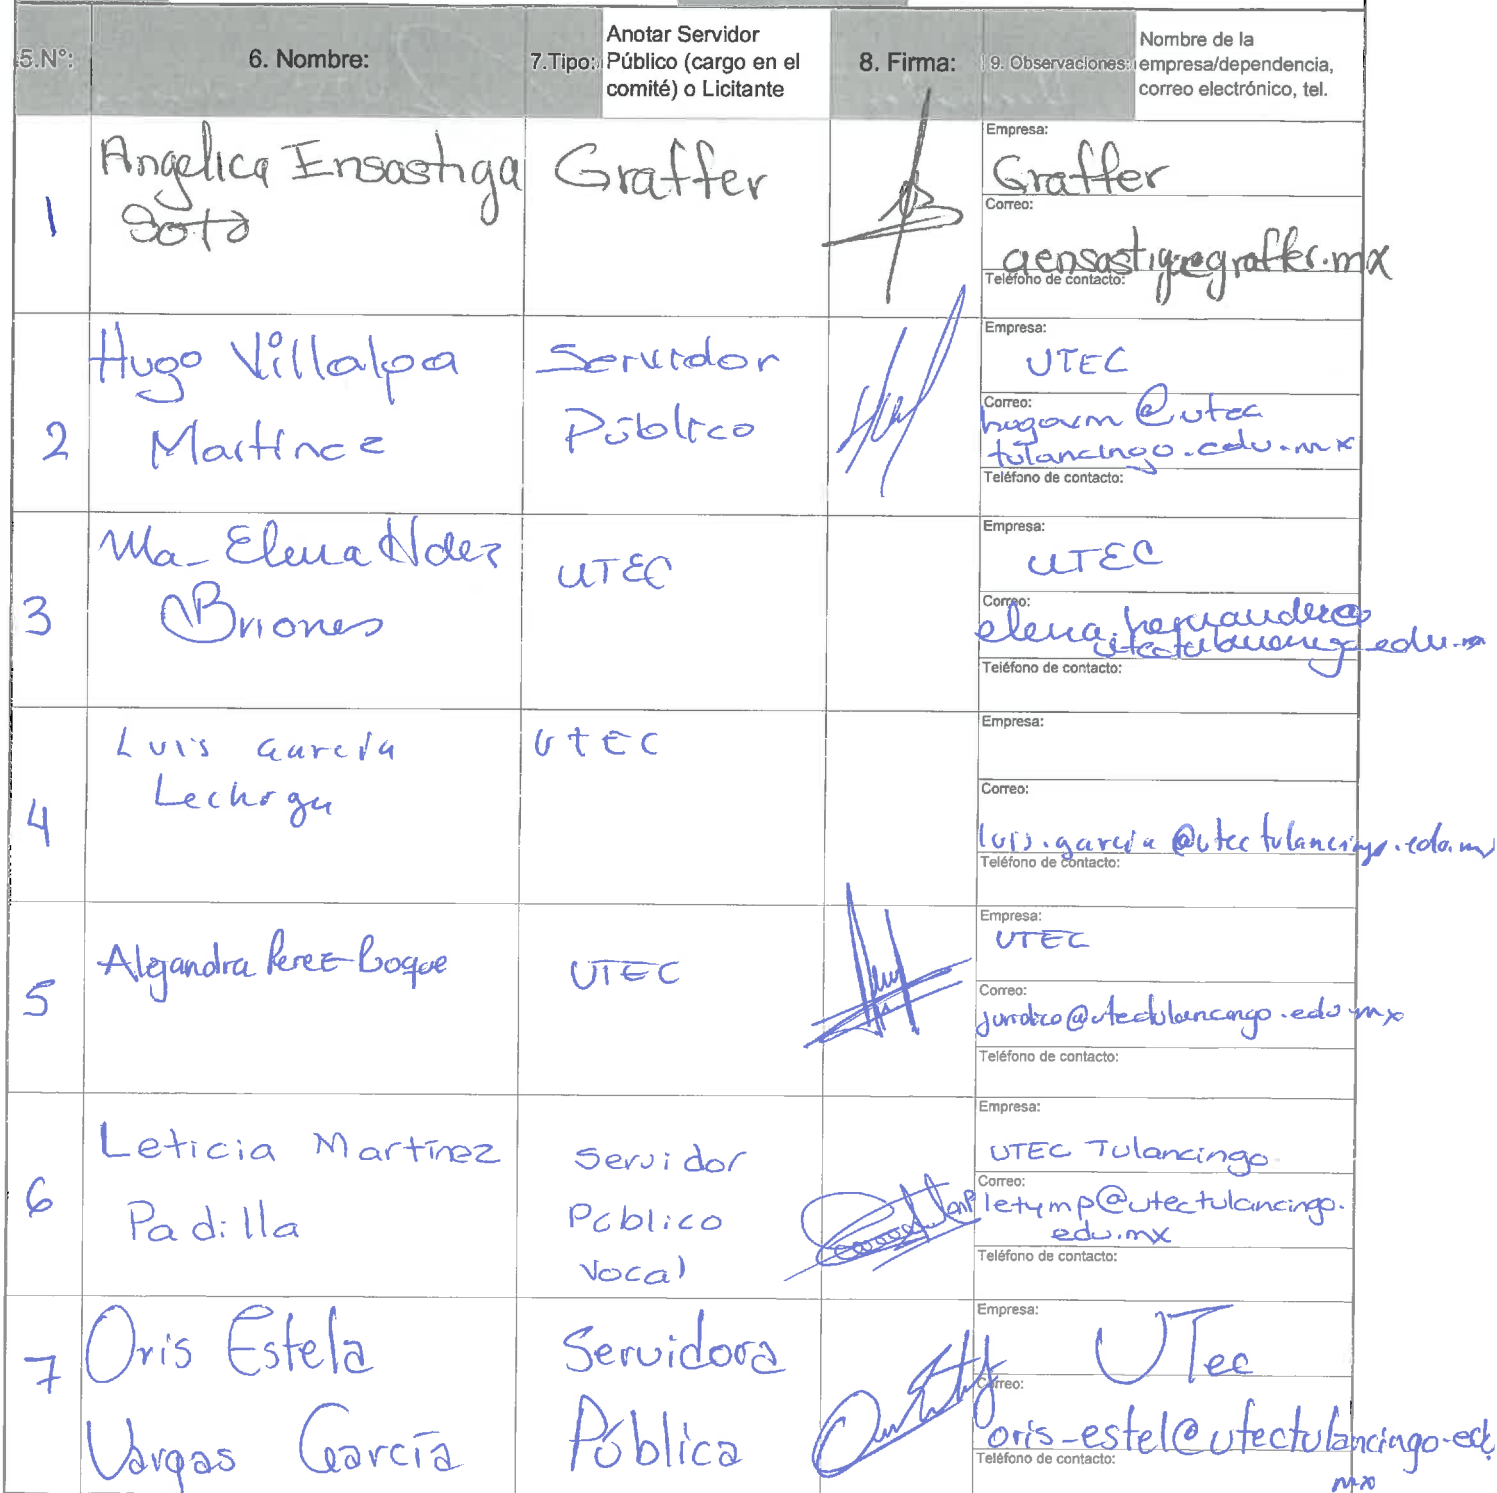 5.N°: 6. Nombre: 7.Tipo: Anotar Servidor Público (cargo en el comité) o Licitante 8. Firma: 9. Observaciones: Nombre de la empresa/dependencia, correo electrónico, tel.
1
Angelica Ensastiga
Soto
Graffer
Empresa:
Graffer
Correo:
aensastiga@graffer.mx
Teléfono de contacto:
2
Hugo Villalpa
Martínez
Servidor
Público
Empresa:
UTEC
Correo:
hugovm@utec
tulancingo.edu.mx
Teléfono de contacto:
3
Ma. Elena Hdez
Briones
UTEC
Empresa:
UTEC
Correo:
elena.hernandez@
utectulancingo.edu.mx
Teléfono de contacto:
4
Luis García
Lechuga
UTEC
Empresa:
Correo:
luis.garcia@utectulancingo.edu.mx
Teléfono de contacto:
5
Alejandra Perez
UTEC
Empresa:
UTEC
Correo:
juridico@utectulancingo.edu.mx
Teléfono de contacto:
6
Leticia Martínez
Padilla
Servidor
Público
Vocal
Empresa:
UTEC Tulancingo
Correo:
letymp@utectulancingo.
edu.mx
Teléfono de contacto:
7
Oris Estela
Vargas García
Servidora
Pública
Empresa:
UTec
Correo:
oris-estel@utectulancingo.edu.
mx
Teléfono de contacto: